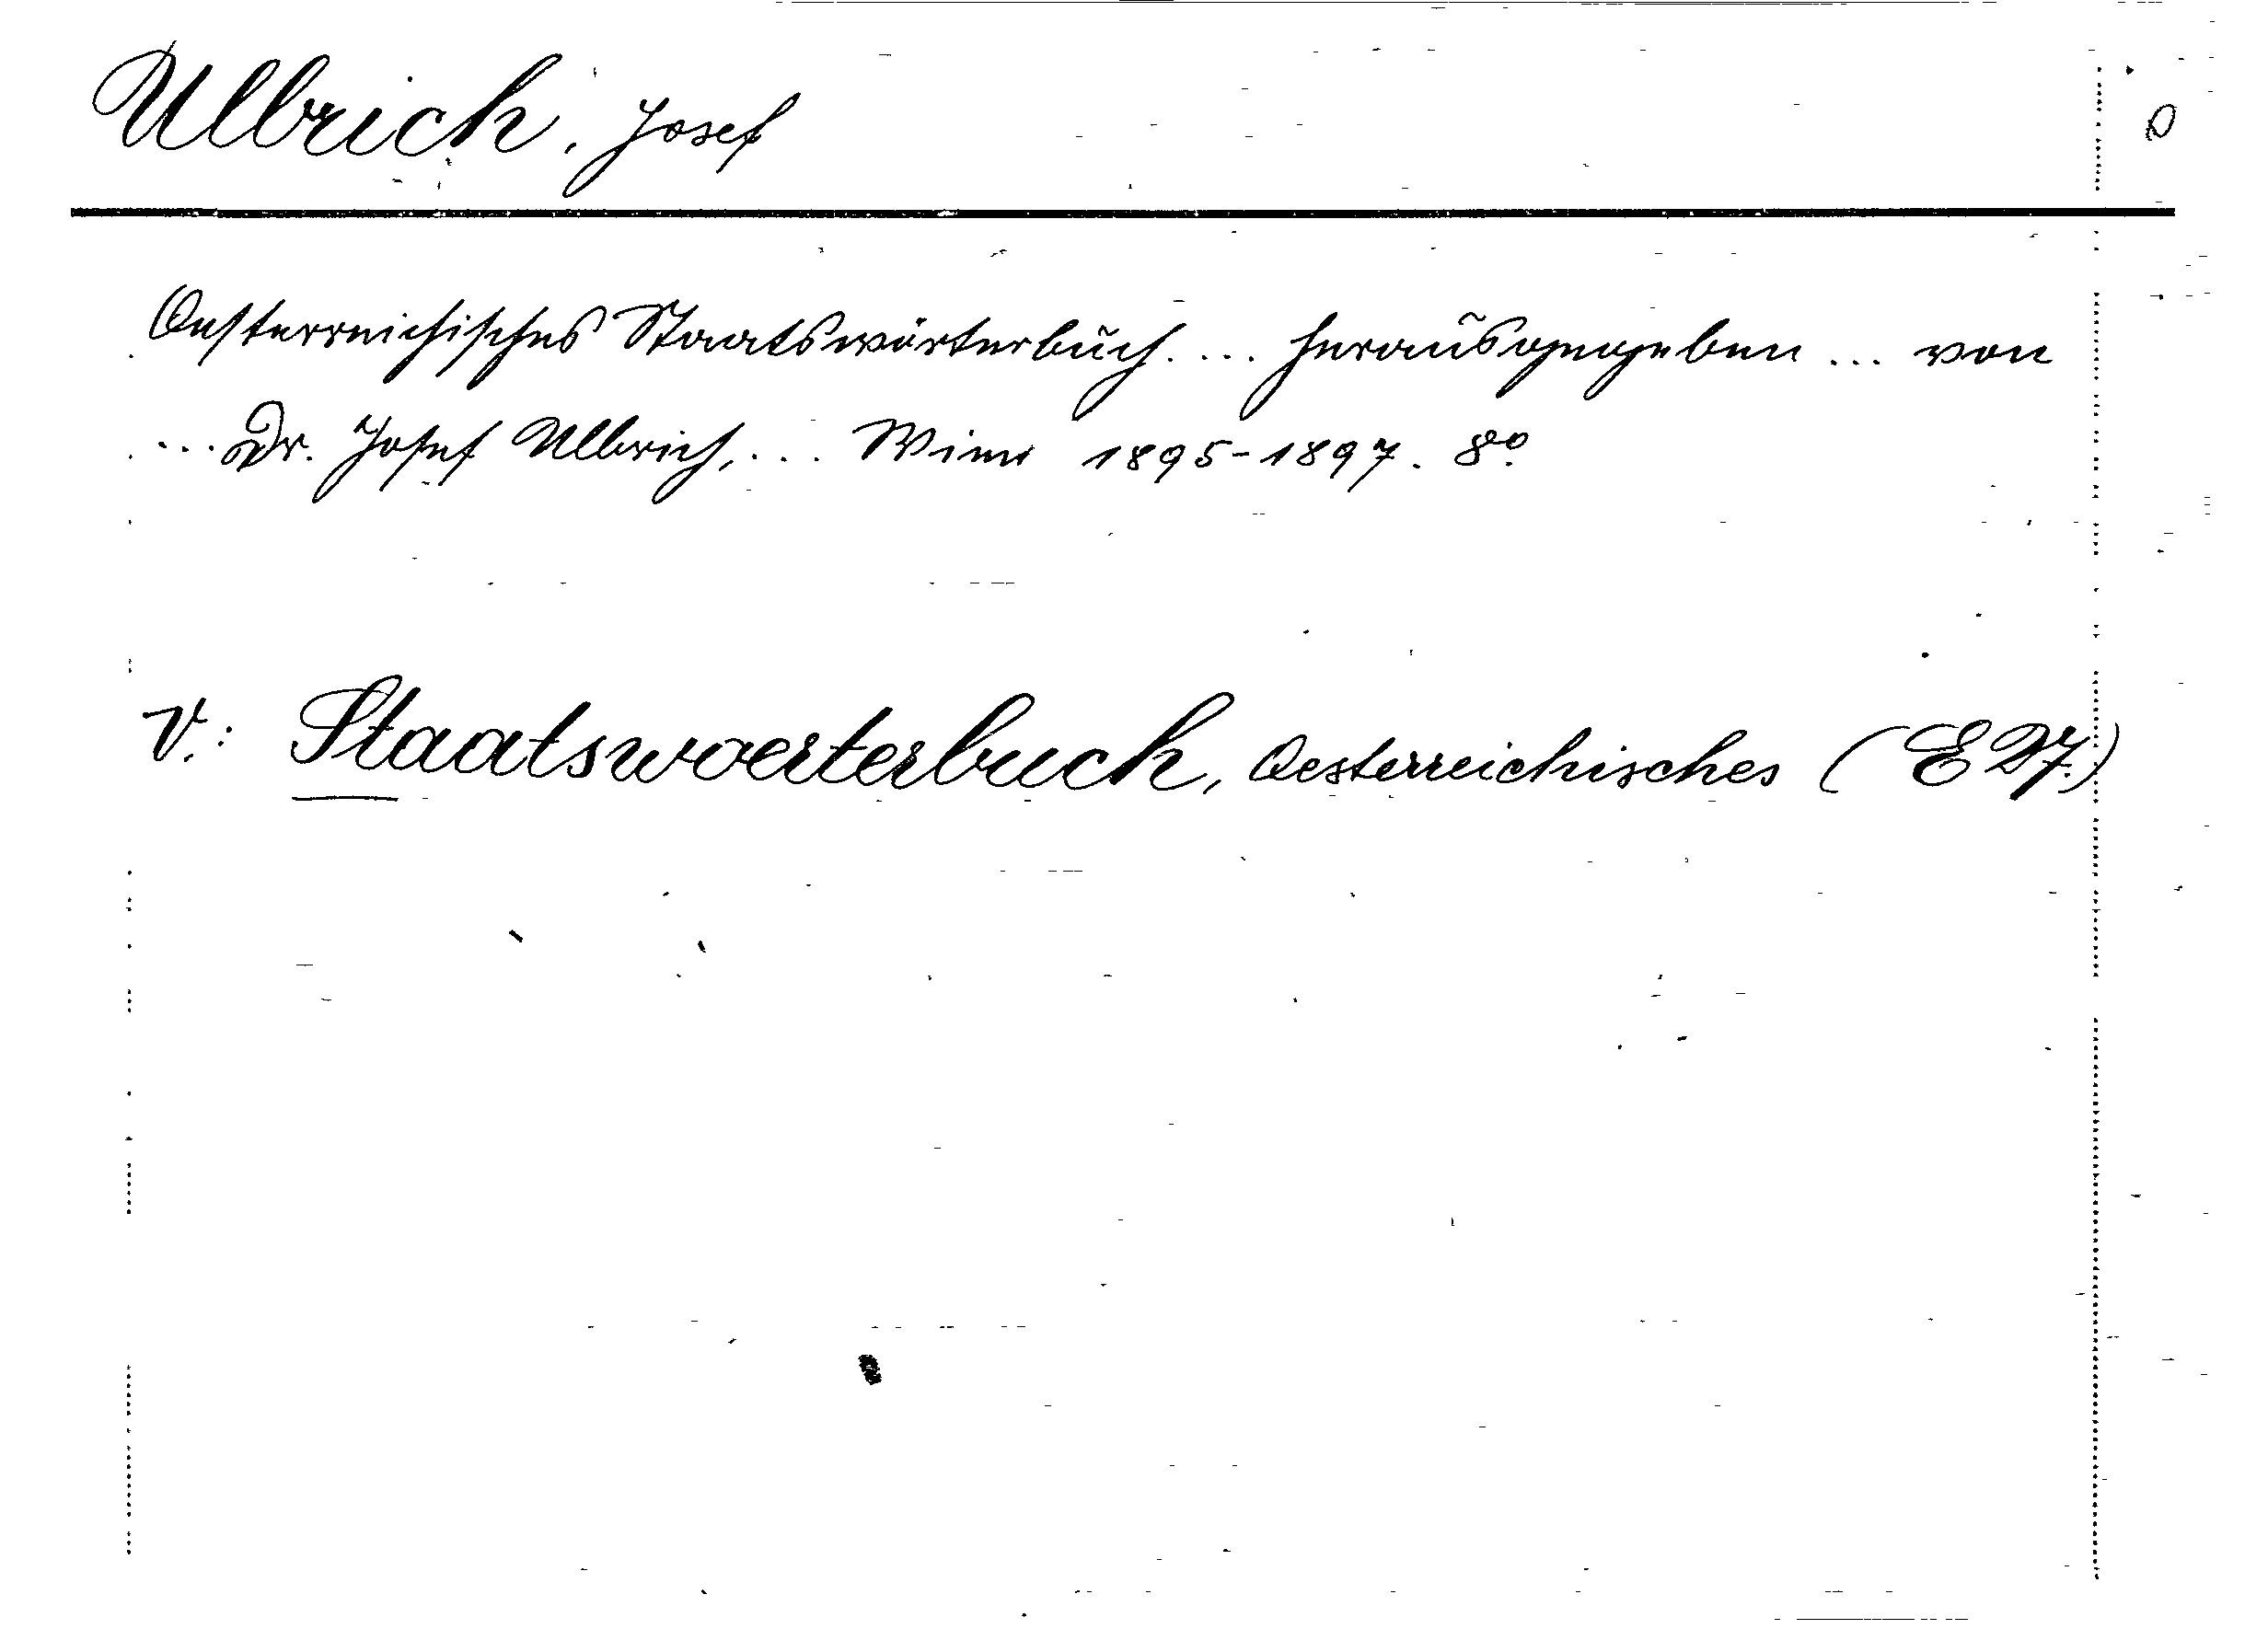 Ulbrich, Josef
Oesterreichisches Staatswörterbuch.... herausgegeben ... von
... Dr. Josef Ulbrich,... Wien 1895-1897. 8º.
V.: Staatswoerterbuch, Oesterreichisches